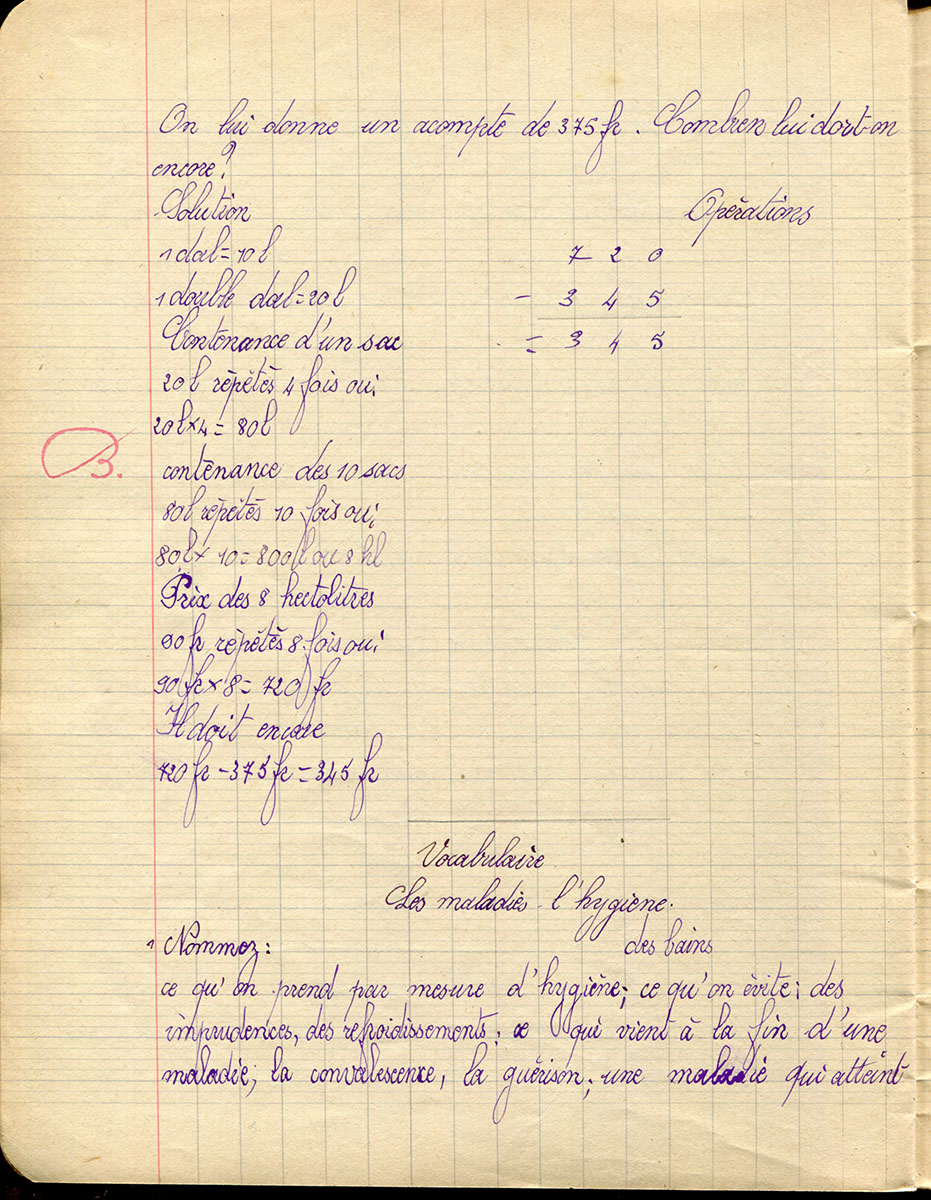 On lui donne un acompte de 375 fr. Combien lui doit-on
encore?
Solution
Opérations
1 dal = 10 l
7 2 0
1 double dal = 20 l
- 3 4 5
Contenance d'un sac
= 3 4 5
20 l répétés 4 fois ou:
20 l × 4 = 80 l
B.
contenance des 10 sacs
80 l répétés 10 fois ou:
80 l × 10 = 800 l ou 8 hl
Prix des 8 hectolitres
90 fr répétés 8 fois ou:
90 fr × 8 = 720 fr
Il doit encore
720 fr - 375 fr = 345 fr
Vocabulaire
Les maladies - l'hygiène.
1 Nommez:
des bains
ce qu'on prend par mesure d'hygiène; ce qu'on évite: des
imprudences, des refroidissements; ce qui vient à la fin d'une
maladie; la convalescence, la guérison; une maladie qui atteint